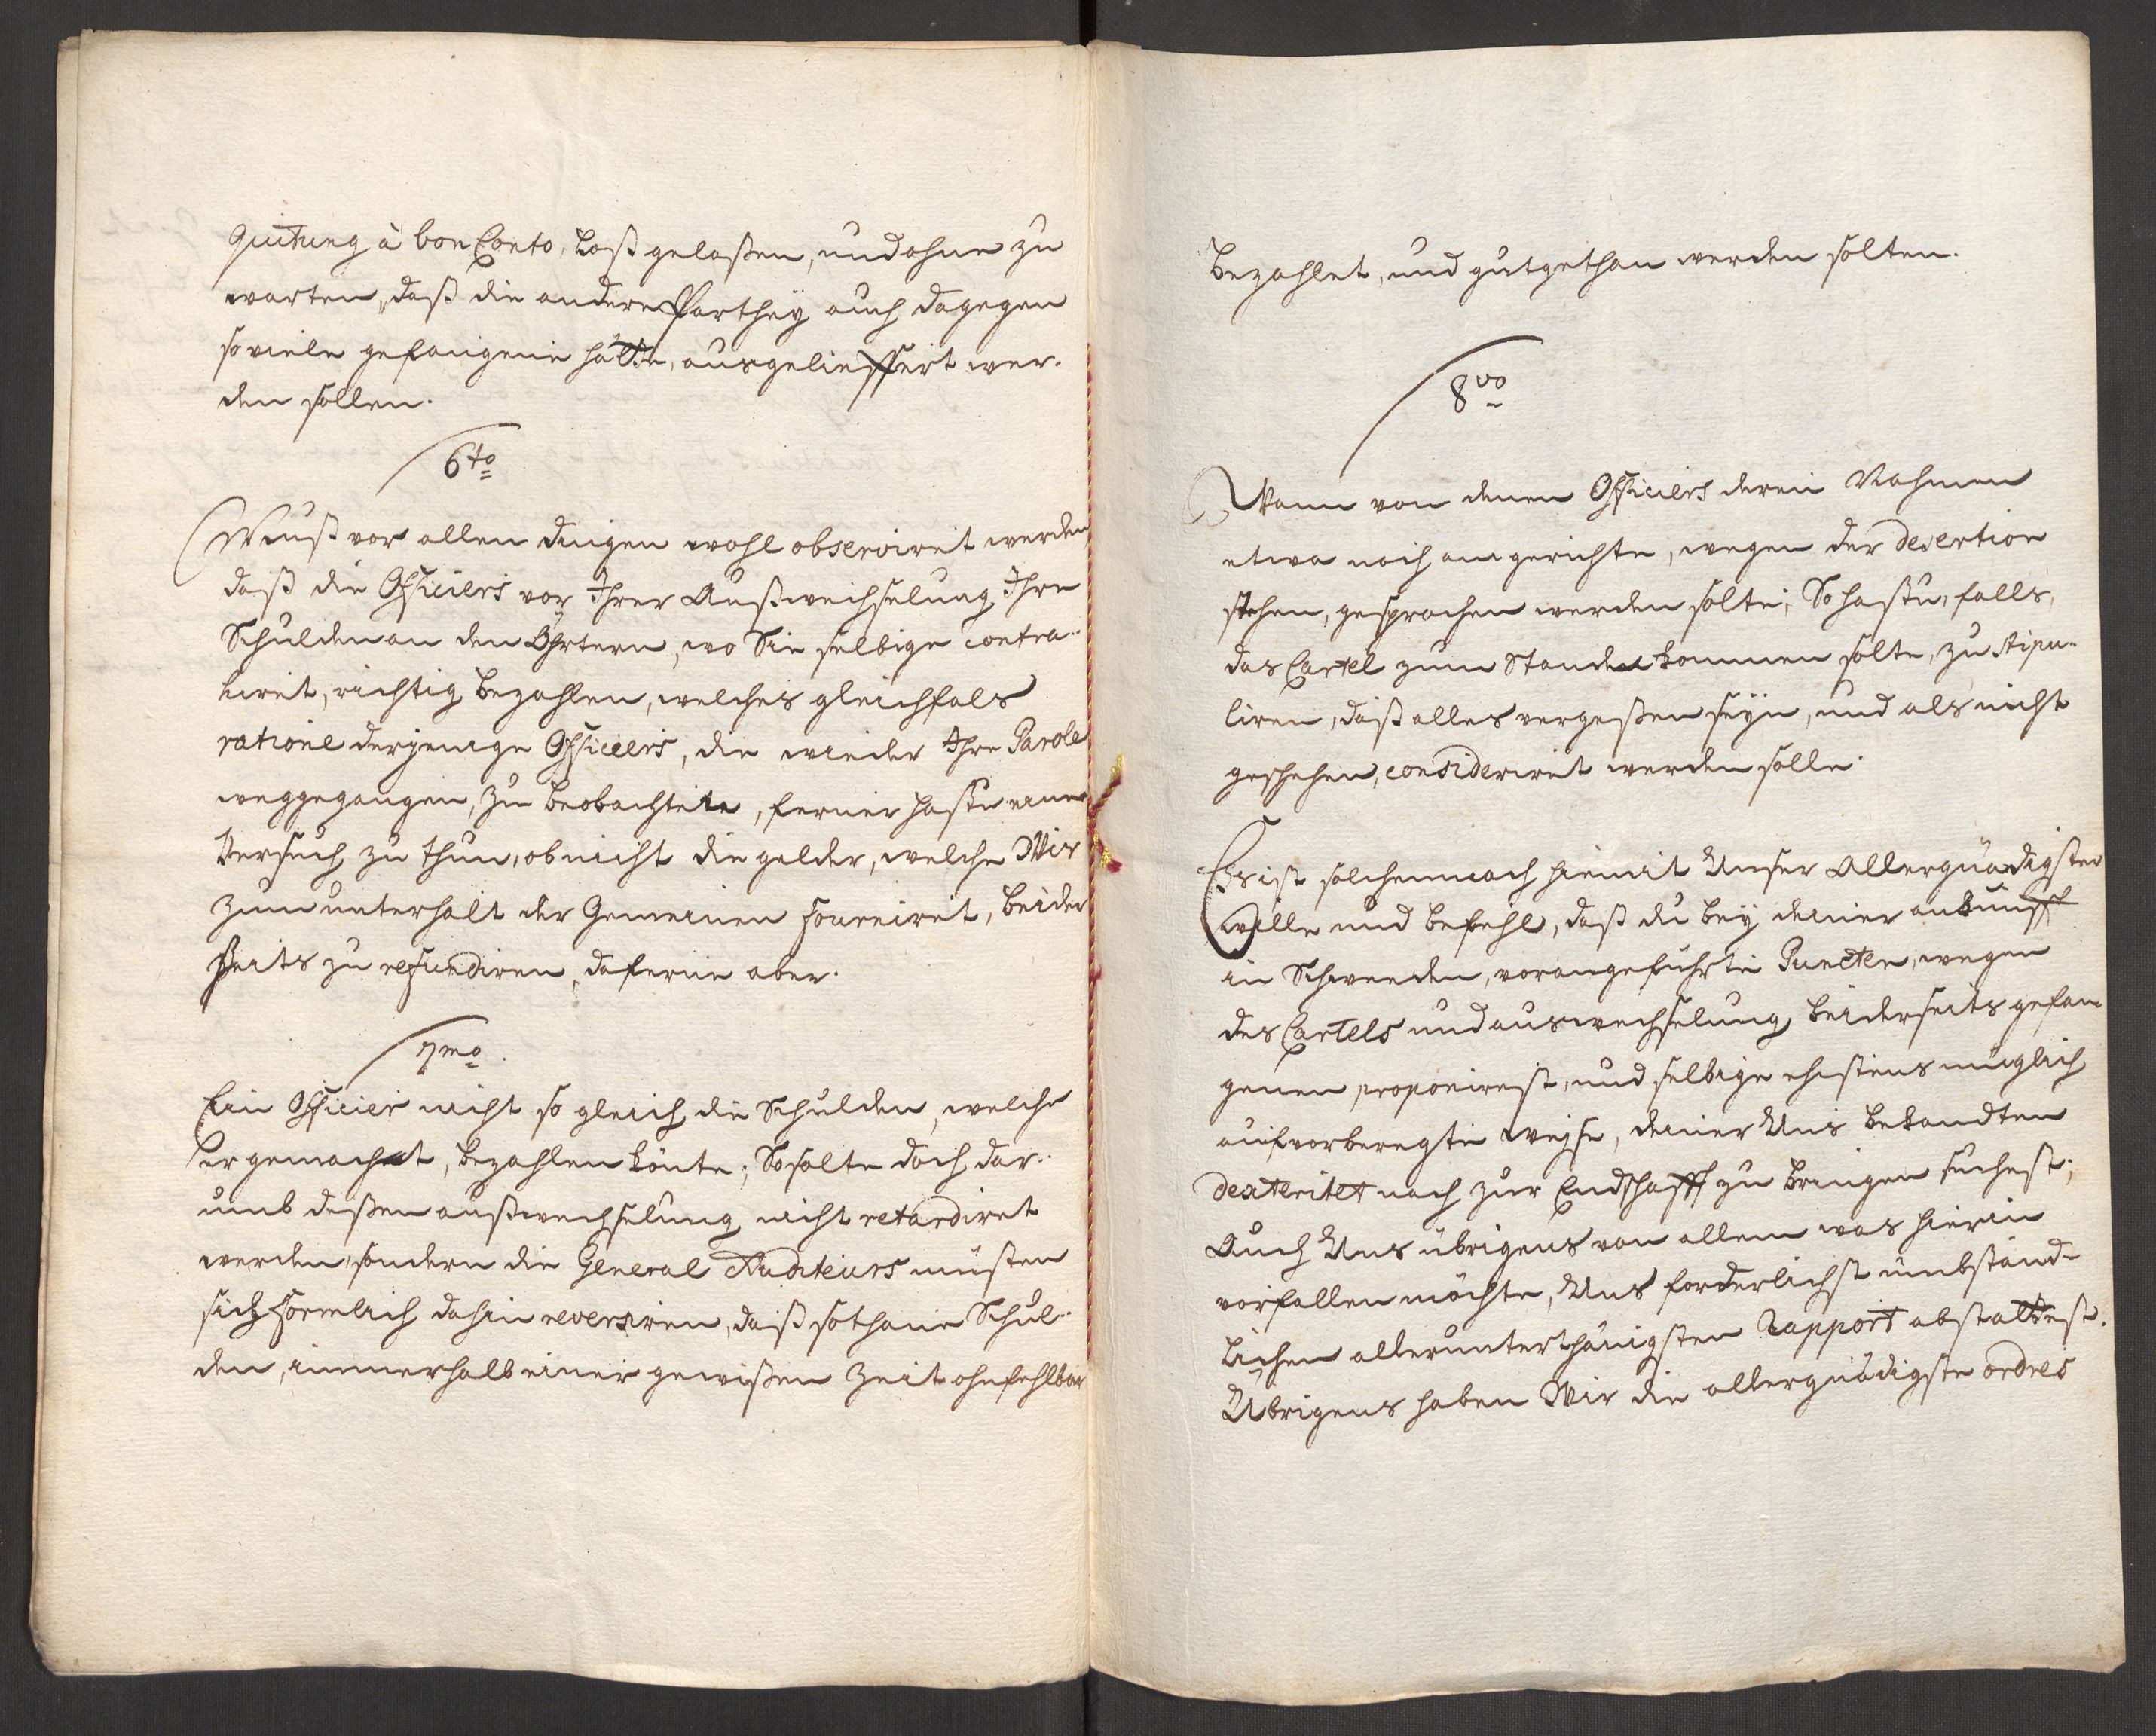 quitung à bon Conto, loß gelaßen, und ohne zu
warten, daß die andere Parthey auch dagegen
so viele gefangene hätte, ausgelieffert wer-
den sollen.
6to
Muß vor allen dingen wohl observiret werden
daß die Officiers vor Ihrer Außwechselung Ihre
Schulden an den Öhrtern, wo Sie selbige contra-
hiret, richtig bezahlen, welches gleichfals
ratione derjenige Officiers, die wieder Ihre Parole
weggegangen, zu beobachten, ferner hastu einen
Versuch zu thun, ob nicht die gelder, welche Wir
zum unterhalt der Gemeinen fourniret, beider
seits zu refundiren, daferne aber.
7mo.
Ein Officier nicht so gleich die Schulden, welche
er gemachet, bezahlen könte; So solte doch dar-
umb deßen außwechselung nicht retardiret
werden, sondern die General Auditeurs müsten
sich förmlich dahin reversiren, daß sothane Schul-
den, innerhalb einer gewißen Zeit ohnfehlbar
bezahlet, und gutgethan werden solten.
8vo
Wann von denen Officiers deren Nahmen
etwa noch am gerichte, wegen der desertion
stehen, gesprochen werden solte; So hastu, falls,
das Cartel zum Stande kommen solte, zu stipu-
liren, daß alles vergeßen seyn, und als nicht
geschehen, consideriret werden solle.
Es ist solchemnach hiemit Unser Allergnädigster
Wille und befehl, daß du bey deiner ankunfft
in Schweeden, vorangeführte Puncten, wegen
des Cartels und auswechselung beiderseits gefan-
genen proponirest, und selbige ehistens müglich
auf vorberegte weyse, deiner Uns bekandten
dexteritet nach zur Endschafft zu bringen suchest;
Auch Uns übrigens von allem was hierin
vorfallen möchte, Uns forderlichst umbständ-
lichen allerunterthänigsten Rapport abstattest.
Übrigens haben Wir die allergnädigste ordres